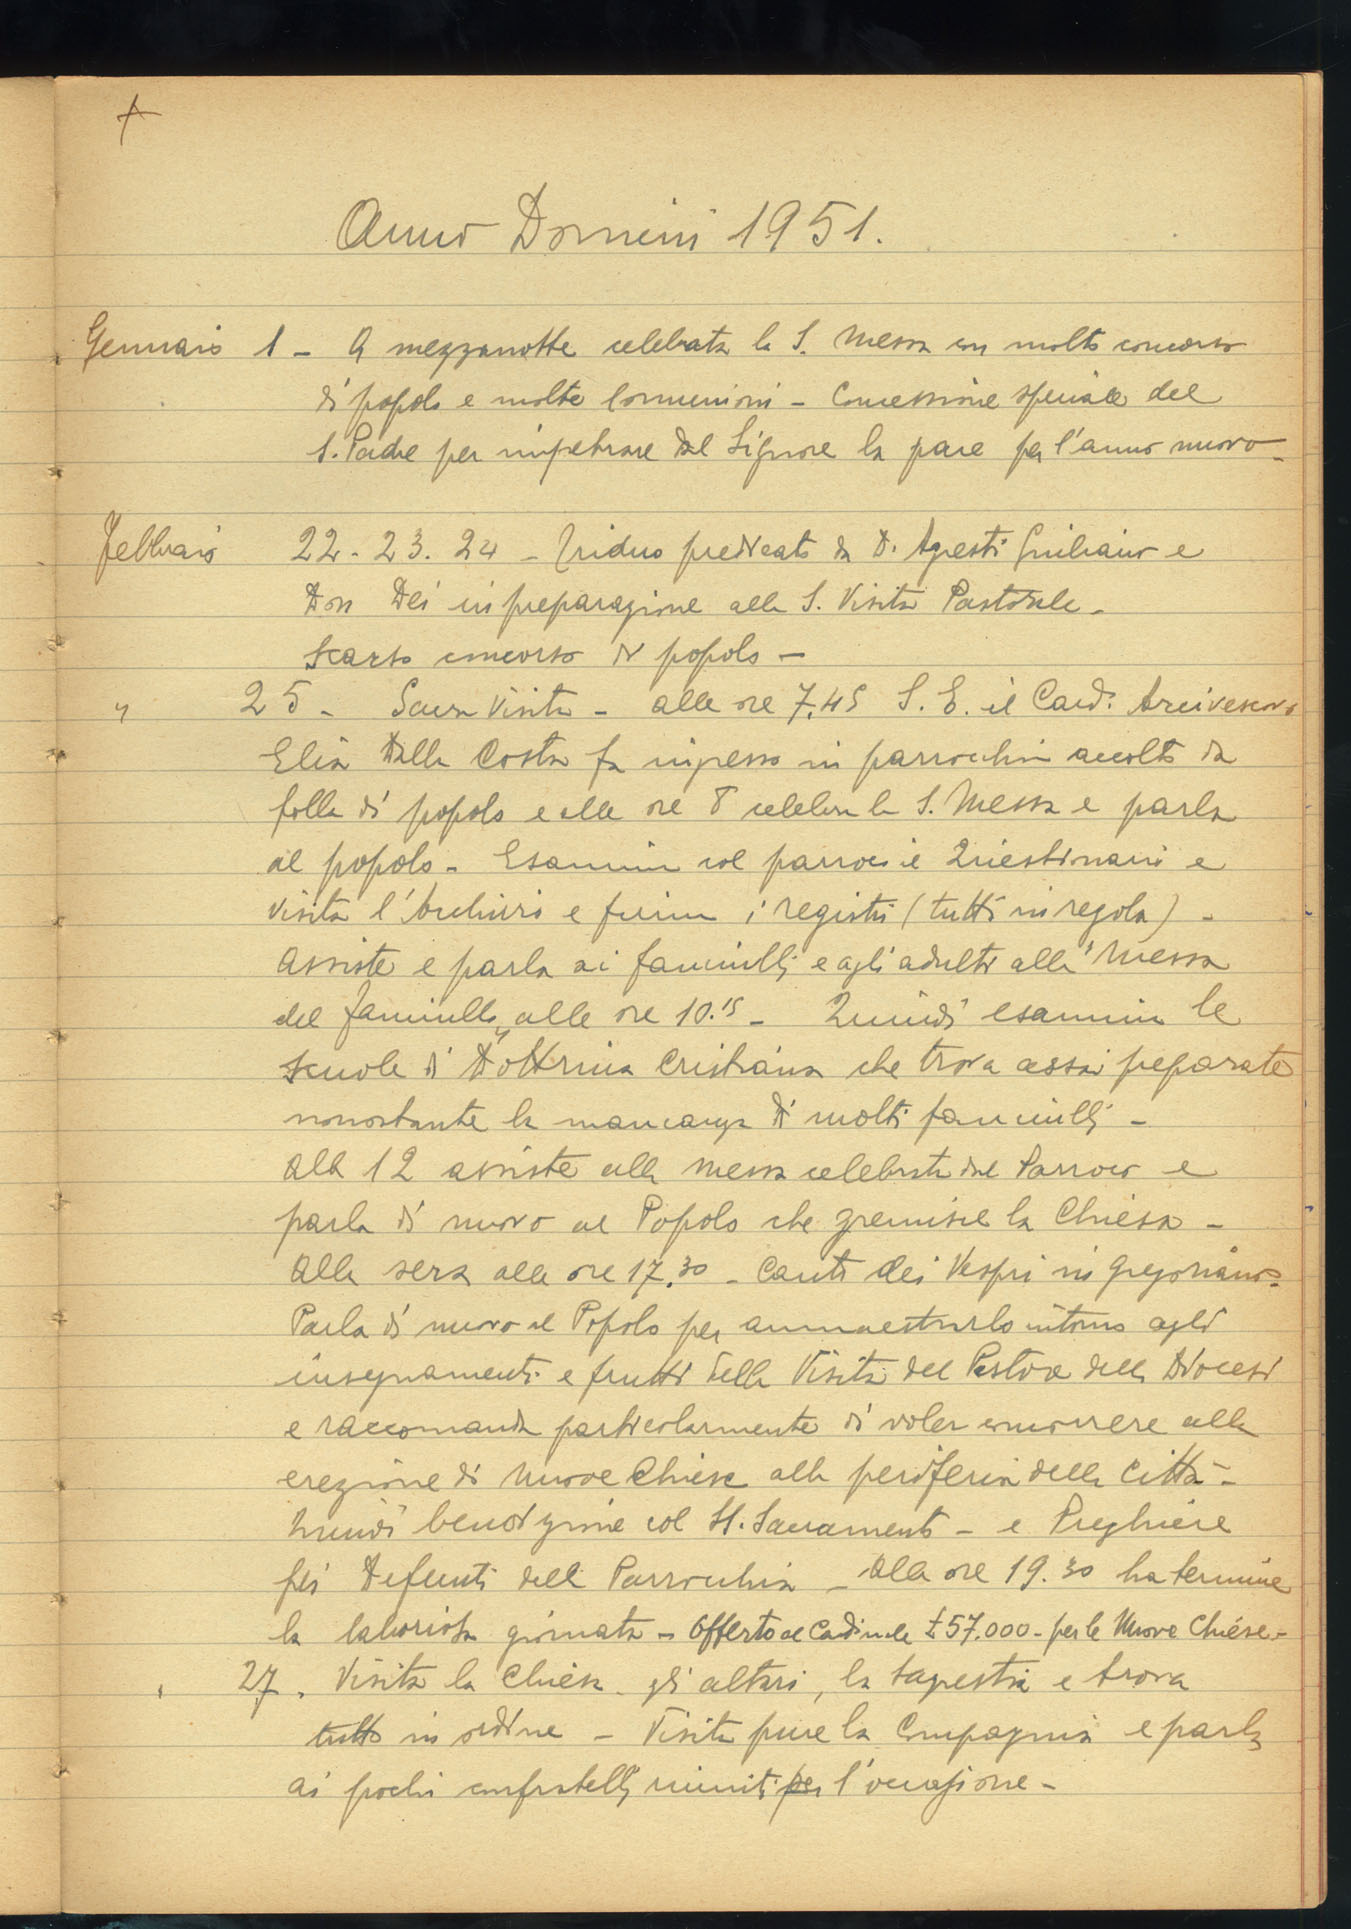 +
Anno Domini 1951.
Gennaio 1 - A mezzanotte celebrata la S. Messa con molto concorso
di popolo e molte Comunioni - Concessione speciale del
S. Padre per impetrare dal Signore la pace per l'anno nuovo -
Febbraio 22. 23. 24 - Triduo predicato da D. Agresti Giuliano e
Don Dei in preparazione alla S. Visita Pastorale -
Scarso concorso di popolo -
" 25 - Sacra Visita - alle ore 7,45 S. E. il Card. Arcivescovo
Elia Dalla Costa fa ingresso in parrocchia accolto da
folla di popolo e alle ore 8 celebra la S. Messa e parla
al popolo - Esamina col parroco i Questionari e
visita l'Archivio e firma i registri (tutti in regola) -
Assiste e parla ai fanciulli e agli adulti alla "Messa
del fanciullo" alle ore 10.15 - Quindi esamina le
scuole di Dottrina Cristiana che trova assai preparate
nonostante la mancanza di molti fanciulli -
Alle 12 assiste alla Messa celebrata dal Parroco e
parla di nuovo al Popolo che gremisce la Chiesa -
Alla sera alle ore 17.30 - Canto dei Vespri in Gregoriano -
Parla di nuovo al Popolo per ammaestrarlo intorno agli
insegnamenti e frutti della Visita del Pastore della Diocesi
e raccomanda particolarmente di voler concorrere alla
erezione di Nuove Chiese alla periferia della Città -
Quindi benedizione col SS. Sacramento - e Preghiere
pei Defunti della Parrocchia - Alle ore 19.30 ha termine
la laboriosa giornata - Offerto al Cardinale £ 57.000 - per le Nuove Chiese -
" 27. Visita la Chiesa gli altari, la sagrestia e trova
tutto in ordine - Visita pure la Compagnia e parla
ai pochi confratelli riuniti per l'occasione -